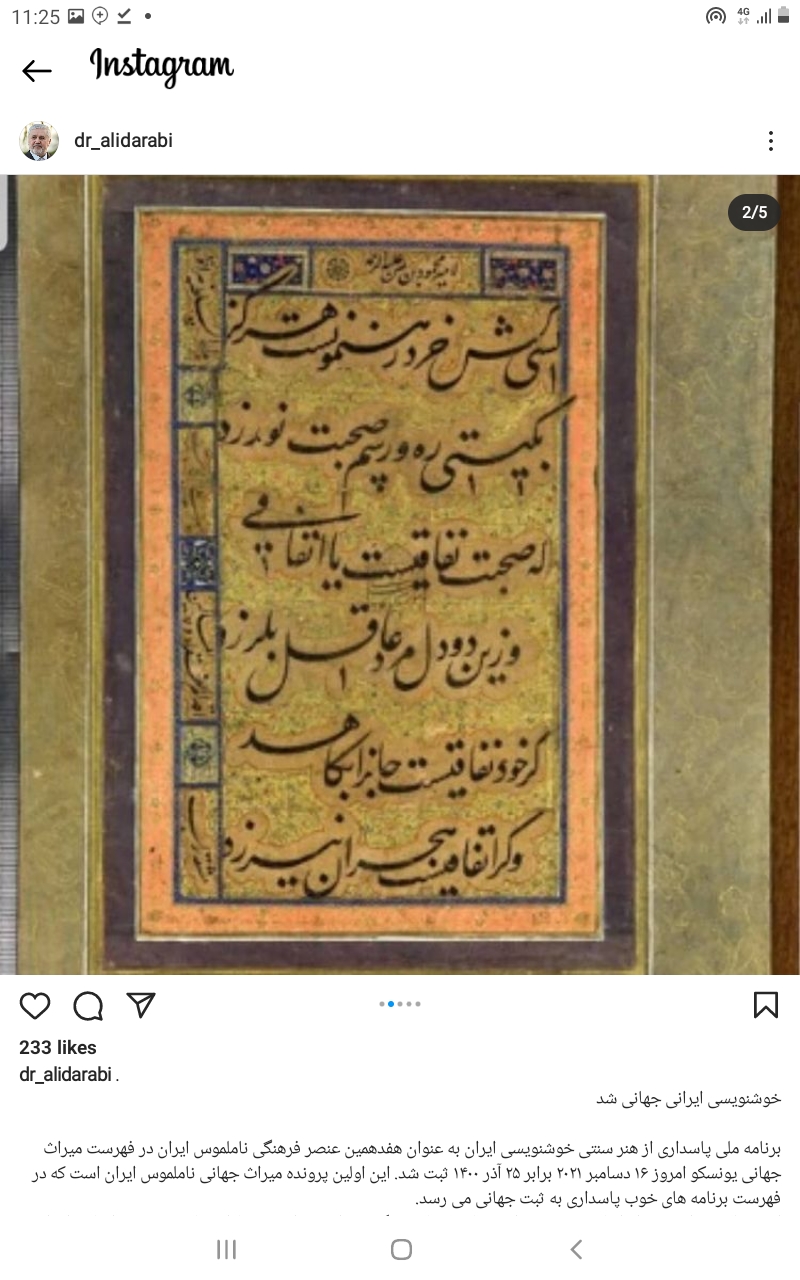 11:25
4G
Instagram
dr_alidarabi
2/5
کسی کش خرد رهنمونست هرگز
بگیتی ره و رسم صحبت نورزد
که صحبت نفاقیست یا اتفاقی
وزین دو دل مرد عاقل بلرزد
گر خود نفاقیست جانرا بکاهد
وگر اتفاقیست هجران نیرزد
233 likes
dr_alidarabi .
خوشنویسی ایرانی جهانی شد
برنامه ملی پاسداری از هنر سنتی خوشنویسی ایران به عنوان هفدهمین عنصر فرهنگی ناملموس ایران در فهرست میراث
جهانی یونسکو امروز ۱۶ دسامبر ۲۰۲۱ برابر ۲۵ آذر ۱۴۰۰ ثبت شد. این اولین پرونده میراث جهانی ناملموس ایران است که در
فهرست برنامه های خوب پاسداری به ثبت جهانی می رسد.